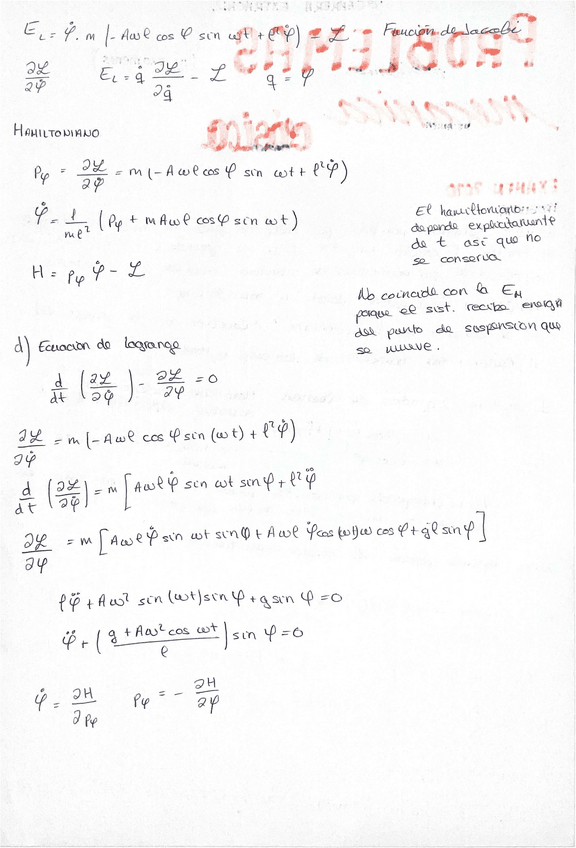 E_L = φ̇ · m (- Aωℓ cos φ sin ωt + ℓ²φ̇) - ℒ Función de Jacobi
∂ℒ/∂φ̇ E_L = q̇ ∂ℒ/∂q̇ - ℒ q = φ
HAMILTONIANO
Pφ = ∂ℒ/∂φ̇ = m (- Aωℓ cos φ sin ωt + ℓ²φ̇)
φ̇ = 1/mℓ² (Pφ + mAωℓ cosφ sin ωt)
H = Pφ φ̇ - ℒ
El hamiltoniano
depende explícitamente
de t así que no
se conserva
No coincide con la E_M
porque el sist. recibe energía
del punto de suspensión que
se mueve.
d) Ecuación de Lagrange
d/dt (∂ℒ/∂φ̇) - ∂ℒ/∂φ = 0
∂ℒ/∂φ̇ = m (- Aωℓ cos φ sin (ωt) + ℓ²φ̇)
d/dt (∂ℒ/∂φ̇) = m [Aωℓφ̇ sin ωt sinφ + ℓ²φ̈
∂ℒ/∂φ = m [Aωℓφ̇ sin ωt sinφ + Aωℓ φ̇cos(ωt)ω cos φ + gℓ sinφ]
ℓφ̈ + Aω² sin (ωt) sin φ + g sin φ = 0
φ̈ + (g + Aω² cos ωt / ℓ) sin φ = 0
φ̇ = ∂H/∂Pφ Pφ = - ∂H/∂φ